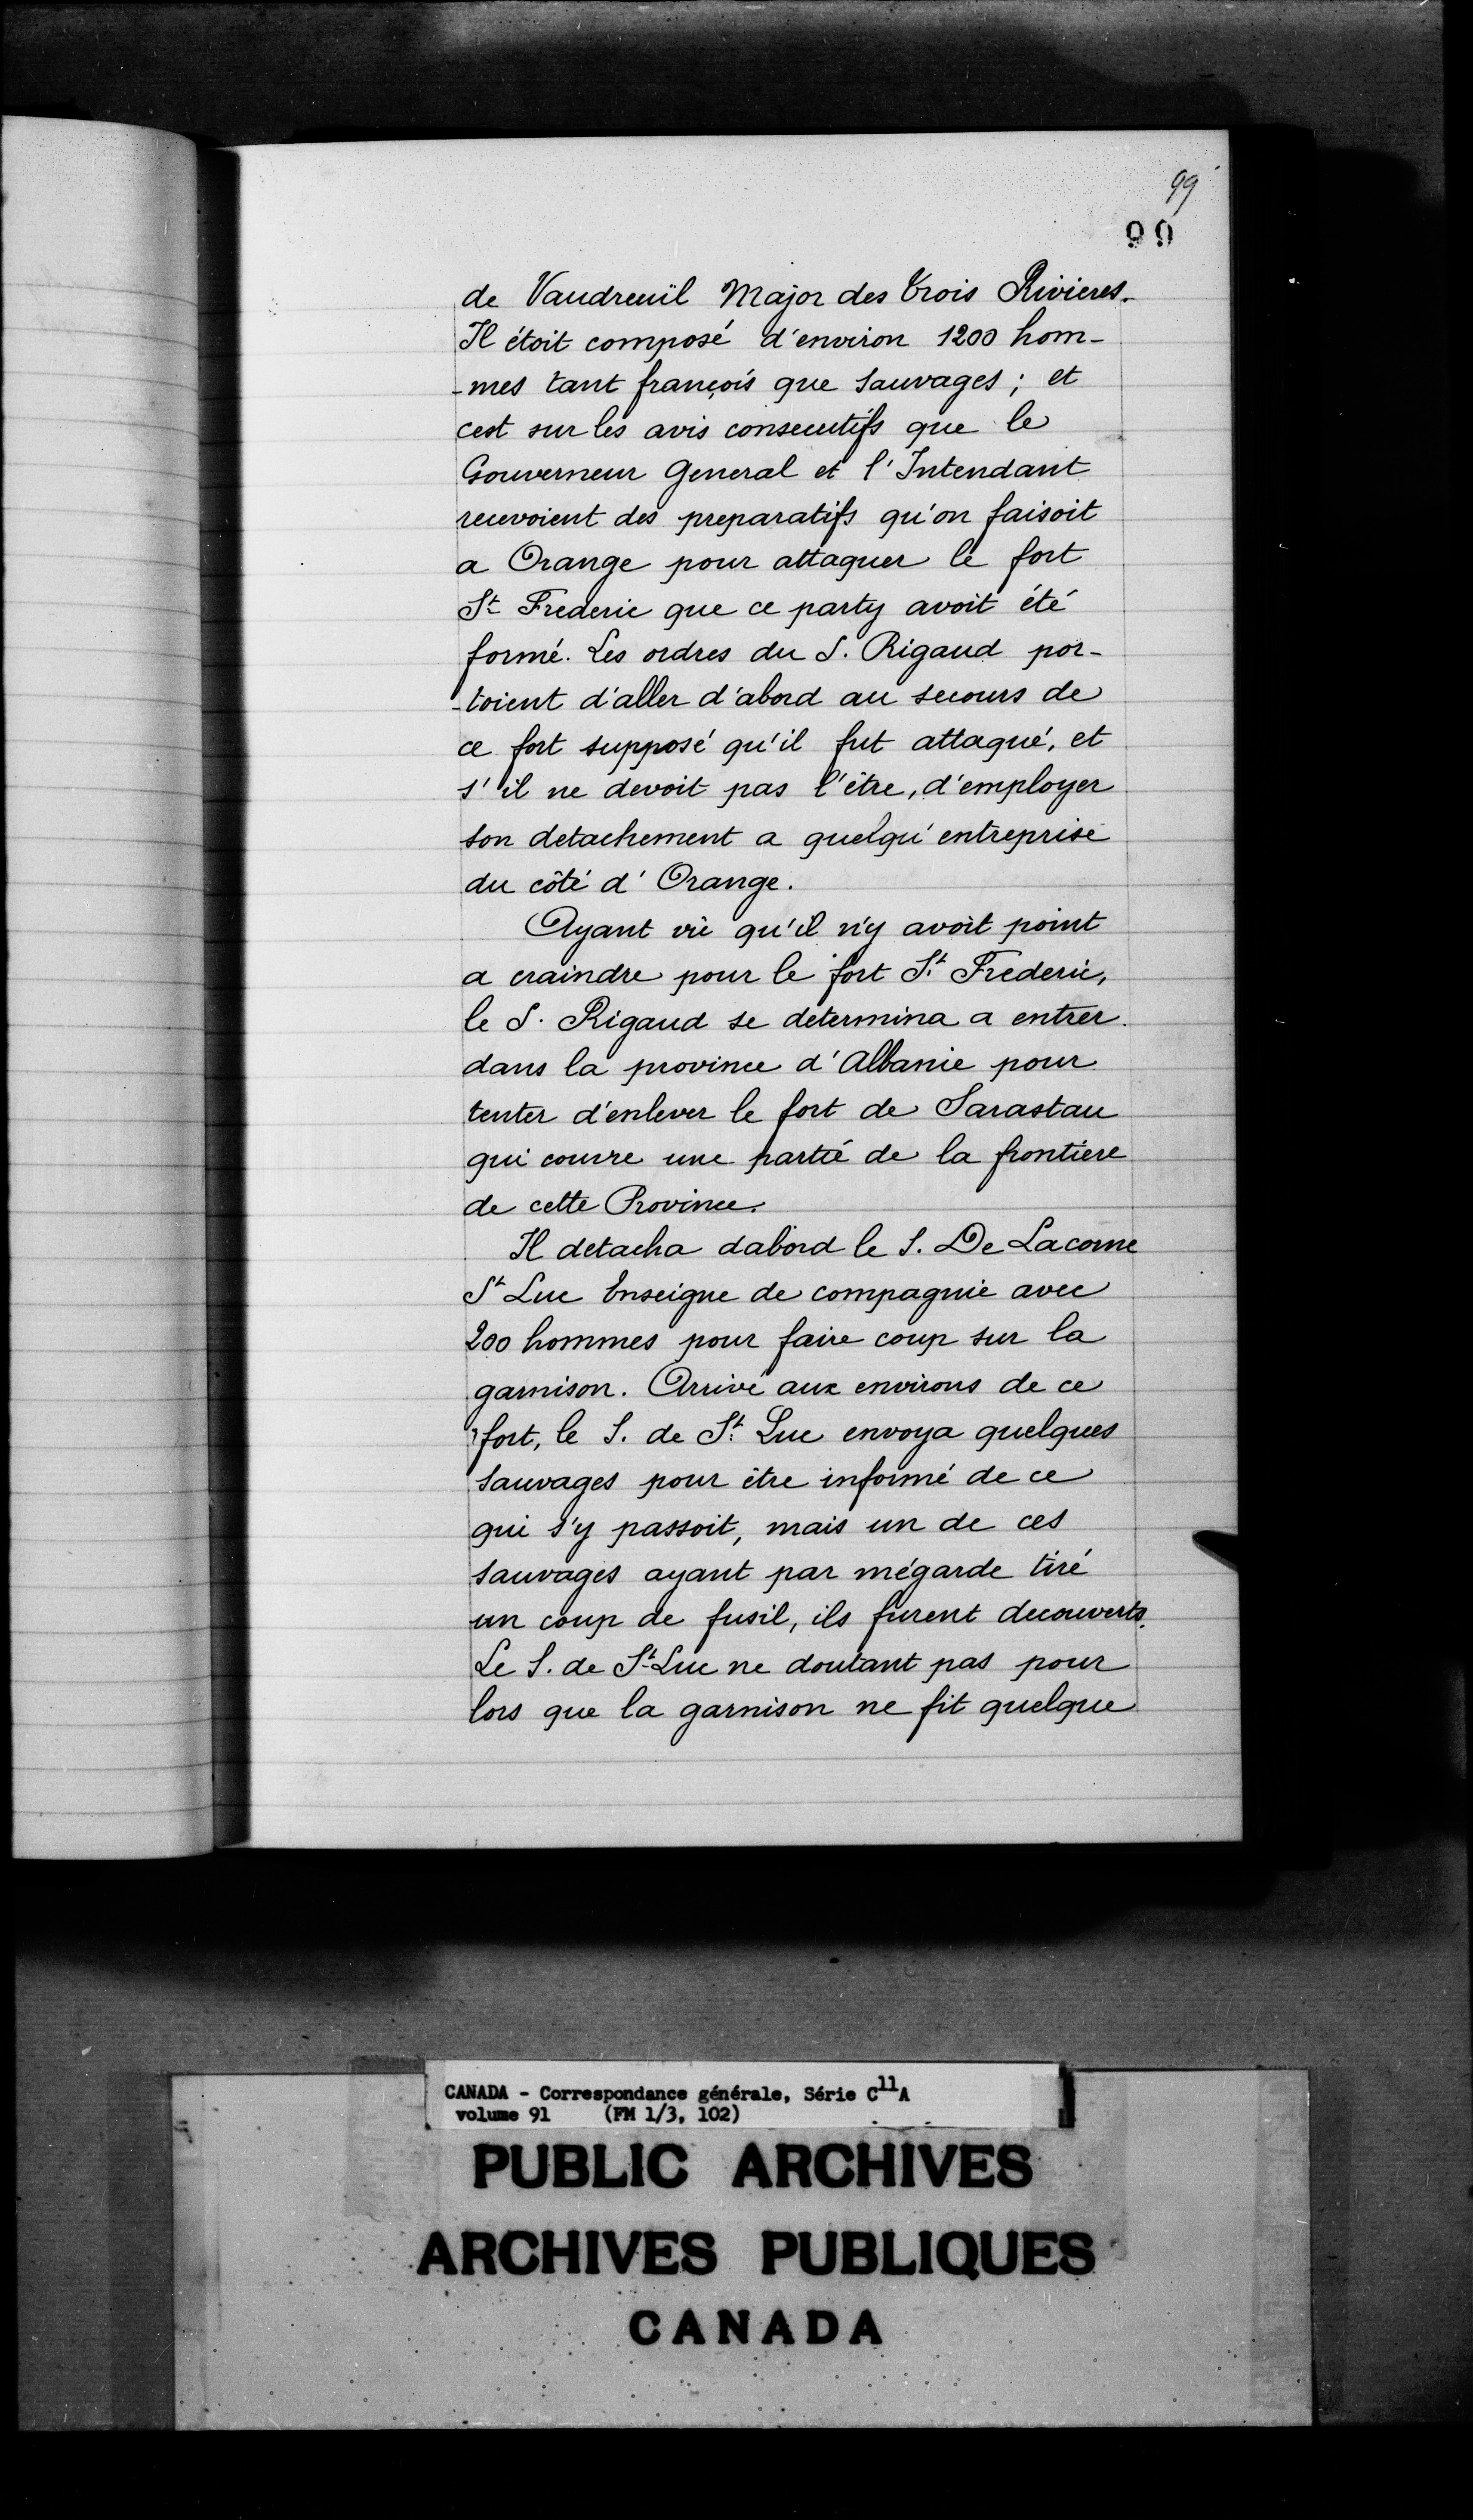 99
99
de Vaudreuil Major des trois Rivieres.
Il étoit composé d'environ 1200 hom-
-mes tant françois que sauvages; et
cest sur les avis consecutifs que le
Gouverneur General et l'Intendant
recevoient des preparatifs qu'on faisoit
a Orange pour attaquer le fort
St Frederic que ce party avoit été
formé. Les ordres du S. Rigaud por-
-toient d'aller d'abord au secours de
ce fort supposé qu'il fut attaqué, et
s'il ne devoit pas l'être, d'employer
son detachement a quelqu'entreprise
du côté d'Orange.
Ayant vû qu'il n'y avoit point
a craindre pour le fort St Frederic,
le S. Rigaud se détermina a entrer
dans la province d'Albanie pour
tenter d'enlever le fort de Sarastau
qui couvre une partie de la frontière
de cette Province.
Il detacha dabord le S. De Lacorne
St Luc Enseigne de compagnie avec
200 hommes pour faire coup sur la
garnison. Arrivé aux environs de ce
fort, le S. de St Luc envoya quelques
sauvages pour être informé de ce
qui s'y passoit, mais un de ces
sauvages ayant par mégarde tiré
un coup de fusil, ils furent decouverts.
Le S. de St Luc ne doutant pas pour
lors que la garnison ne fit quelque
CANADA - Correspondance générale, Série C11A
volume 91 (FM 1/3, 102)
PUBLIC ARCHIVES
ARCHIVES PUBLIQUES
CANADA